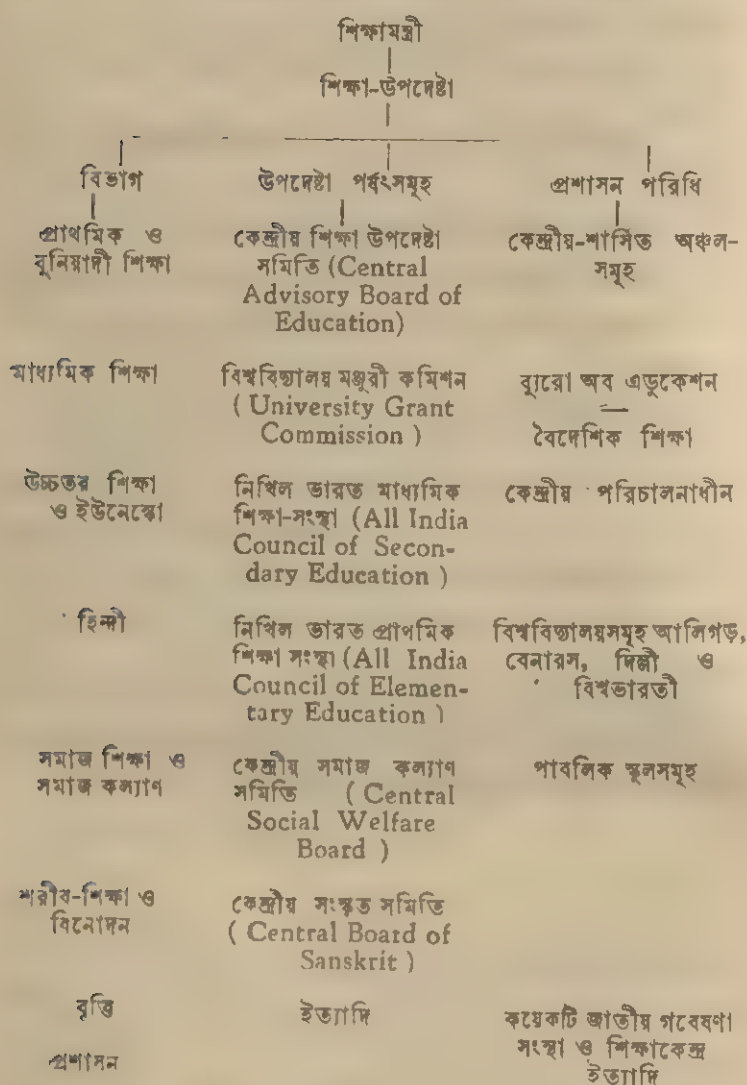 শিক্ষামন্ত্রী
শিক্ষা-উপদেষ্টা
বিভাগ
প্রাথমিক ও
বুনিয়াদী শিক্ষা
মাধ্যমিক শিক্ষা
উচ্চতর শিক্ষা
ও ইউনেস্কো
হিন্দী
সমাজ শিক্ষা ও
সমাজ কল্যাণ
শরীর-শিক্ষা ও
বিনোদন
বৃত্তি
প্রশাসন
উপদেষ্টা পর্ষৎসমূহ
কেন্দ্রীয় শিক্ষা উপদেষ্টা
সমিতি (Central
Advisory Board of
Education)
বিশ্ববিদ্যালয় মঞ্জুরী কমিশন
( University Grant
Commission )
নিখিল ভারত মাধ্যমিক
শিক্ষা-সংস্থা (All India
Council of Secon-
dary Education )
নিখিল ভারত প্রাথমিক
শিক্ষা সংস্থা (All India
Council of Elemen-
tary Education )
কেন্দ্রীয় সমাজ কল্যাণ
সমিতি ( Central
Social Welfare
Board )
কেন্দ্রীয় সংস্কৃত সমিতি
( Central Board of
Sanskrit )
ইত্যাদি
প্রশাসন পরিধি
কেন্দ্রীয়-শাসিত অঞ্চল-
সমূহ
ব্যুরো অব এডুকেশন
বৈদেশিক শিক্ষা
কেন্দ্রীয় পরিচালনাধীন
বিশ্ববিদ্যালয়সমূহ আলিগড়,
বেনারস, দিল্লী ও
বিশ্বভারতী
পাবলিক স্কুলসমূহ
কয়েকটি জাতীয় গবেষণা
সংস্থা ও শিক্ষাকেন্দ্র
ইত্যাদি